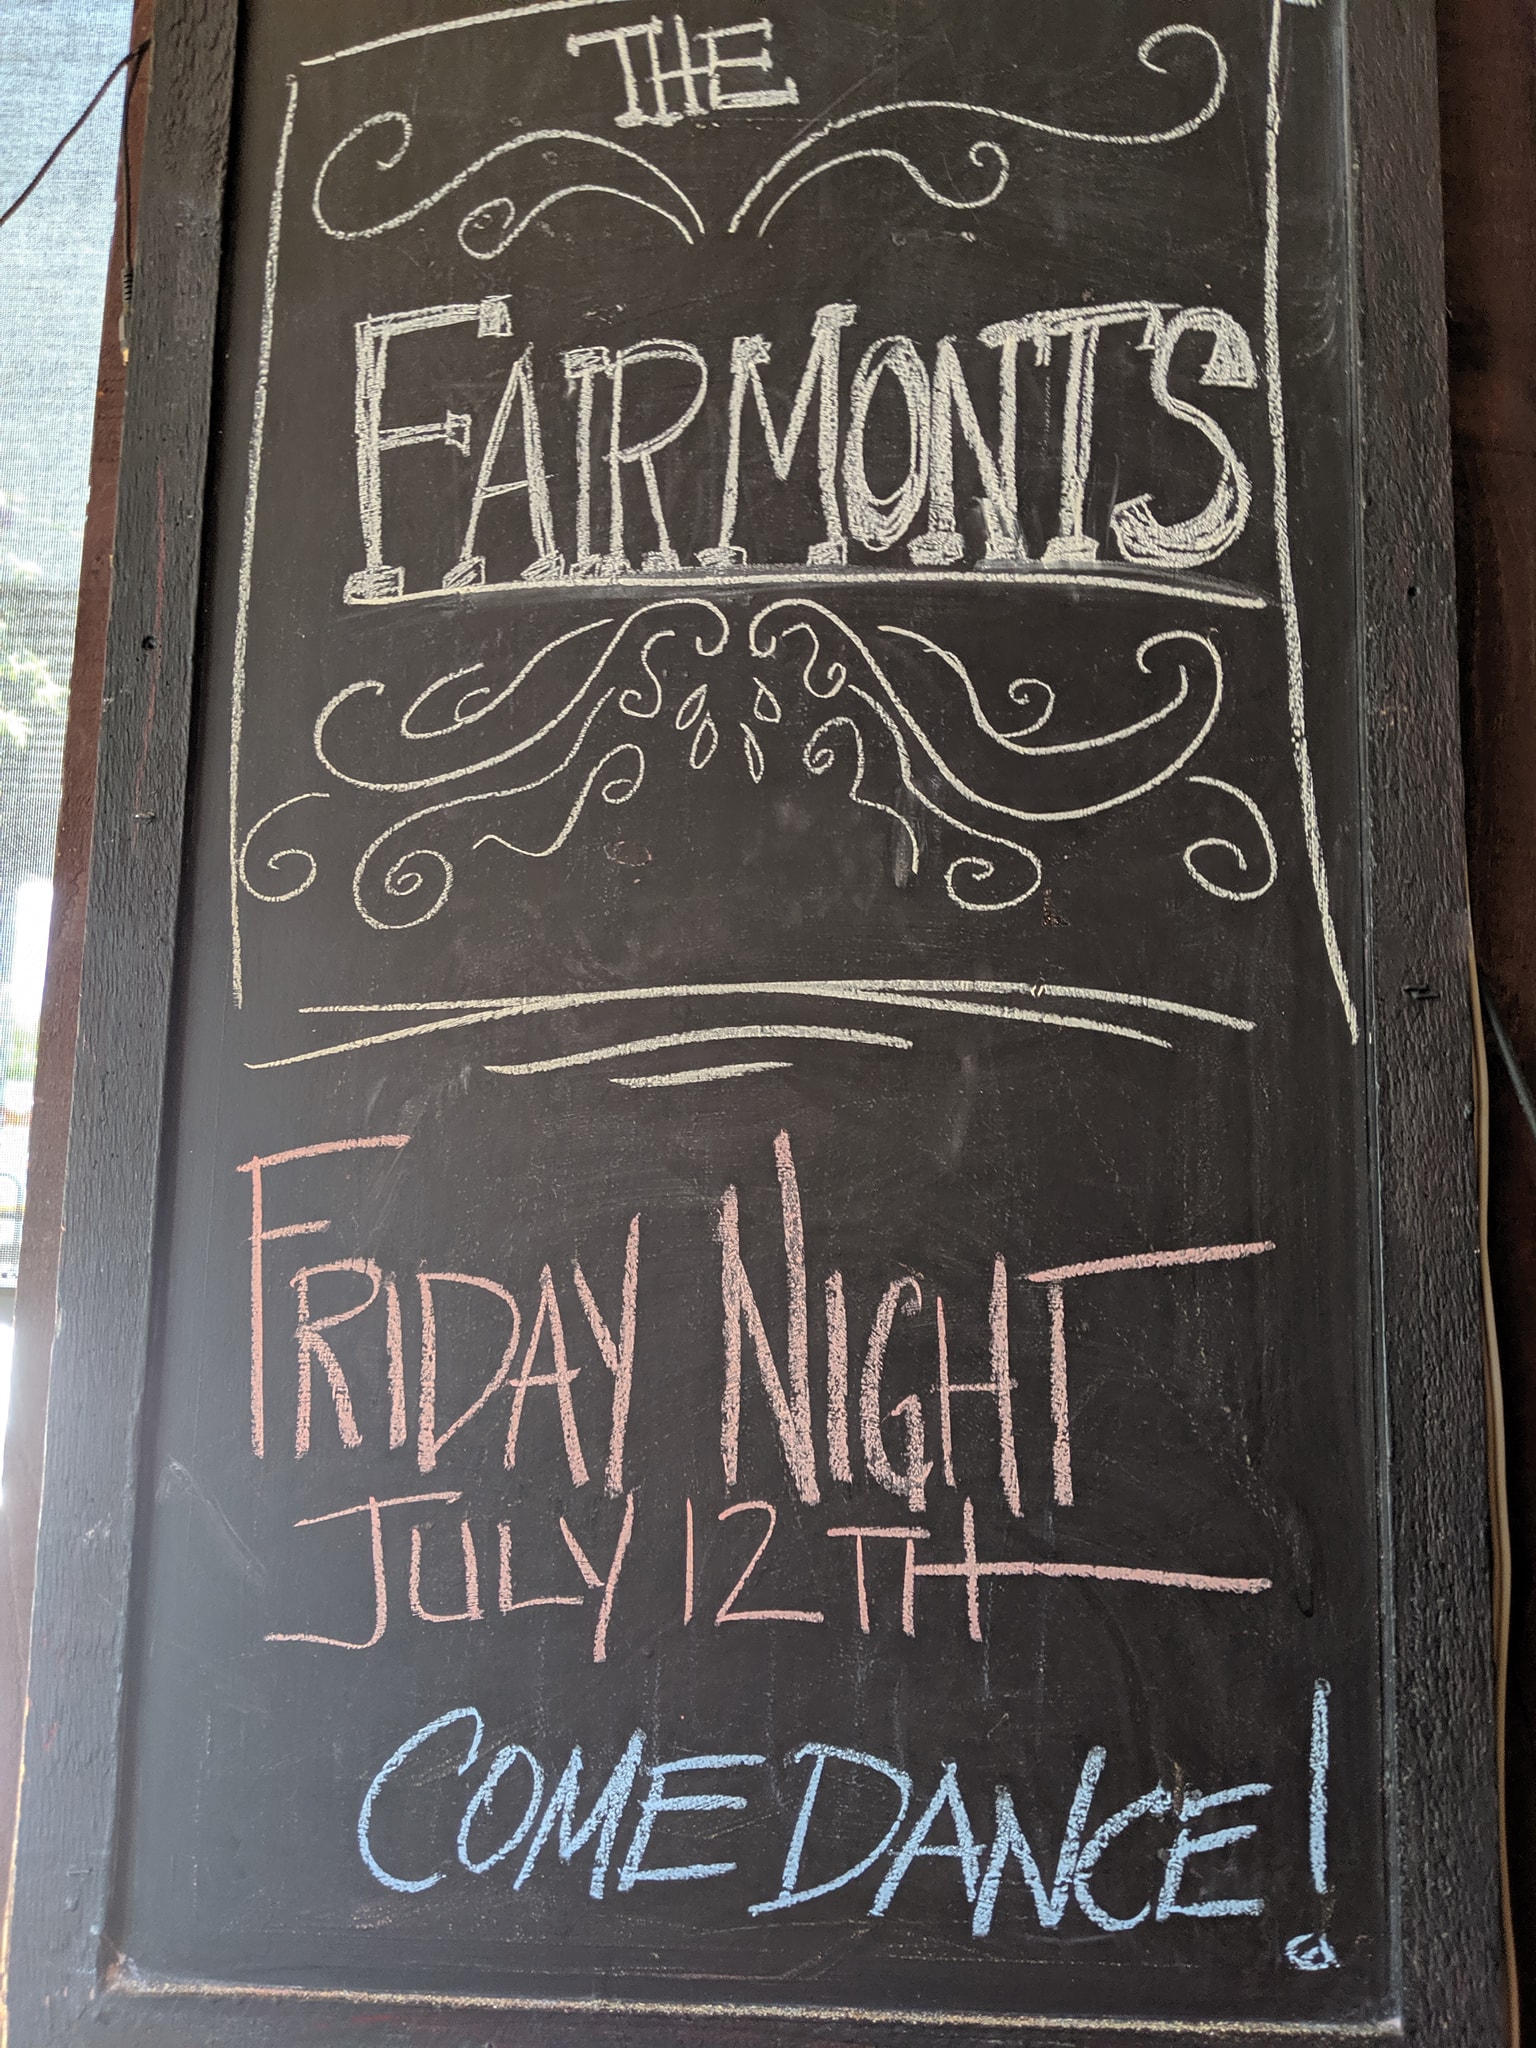 THE
FAIRMONTS
FRIDAY NIGHT
JULY 12TH
COME DANCE!